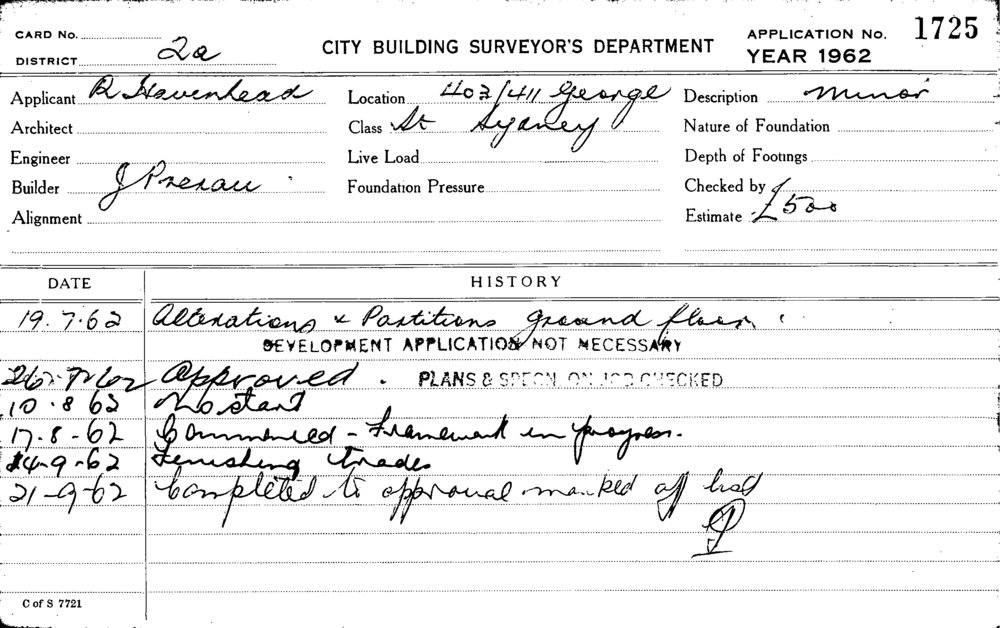 CARD No.
DISTRICT 2a
CITY BUILDING SURVEYOR'S DEPARTMENT
APPLICATION No. 1725
YEAR 1962
Applicant R Havenhead
Location 403/411 George
Description minor
Architect
Class St Sydney
Nature of Foundation
Engineer
Live Load
Depth of Footings
Builder J
Foundation Pressure
Checked by
Alignment
Estimate £500
DATE HISTORY
19.7.62 Alterations & Partitions ground floor.
DEVELOPMENT APPLICATION NOT NECESSARY
26.7.62 Approved. PLANS & SPECN. ON JOB CHECKED
10.8.62 No start
17-8-62 Commenced - Framework in progress.
4-9-62 Finishing trades
21-9-62 Completed to approval marked off list
C of S 7721